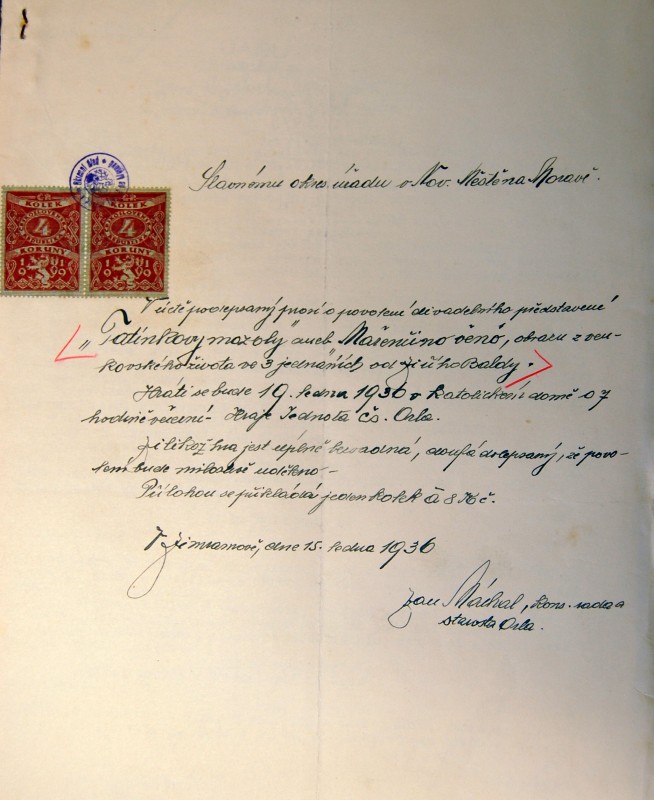 Slavnému okres. úřadu v Nov. Městě na Moravě.
ČR ČR
KOLEK KOLEK
4 4
KORUNY KORUNY
V úctě podepsaný prosí o povolení divadelního představení
„Tatínkovy mozoly" aneb Mařenčino věno, obrazu z ven-
kovského života ve 3 jednáních od Jiřího Baldy.
Hráti se bude 19. ledna 1936 v Katolickém domě o 7
hodině večerní - Hraje Jednota čs. Orla.
Jelikož hra jest úplně bezvadná, doufá dolepsaný, že povo-
lení bude milostivě uděleno -
Přílohou se přikládá jeden kolek á 8 Kč.
V Jimramově, dne 15. ledna 1936
Jan Máchal, kons. rada a
starosta Orla.